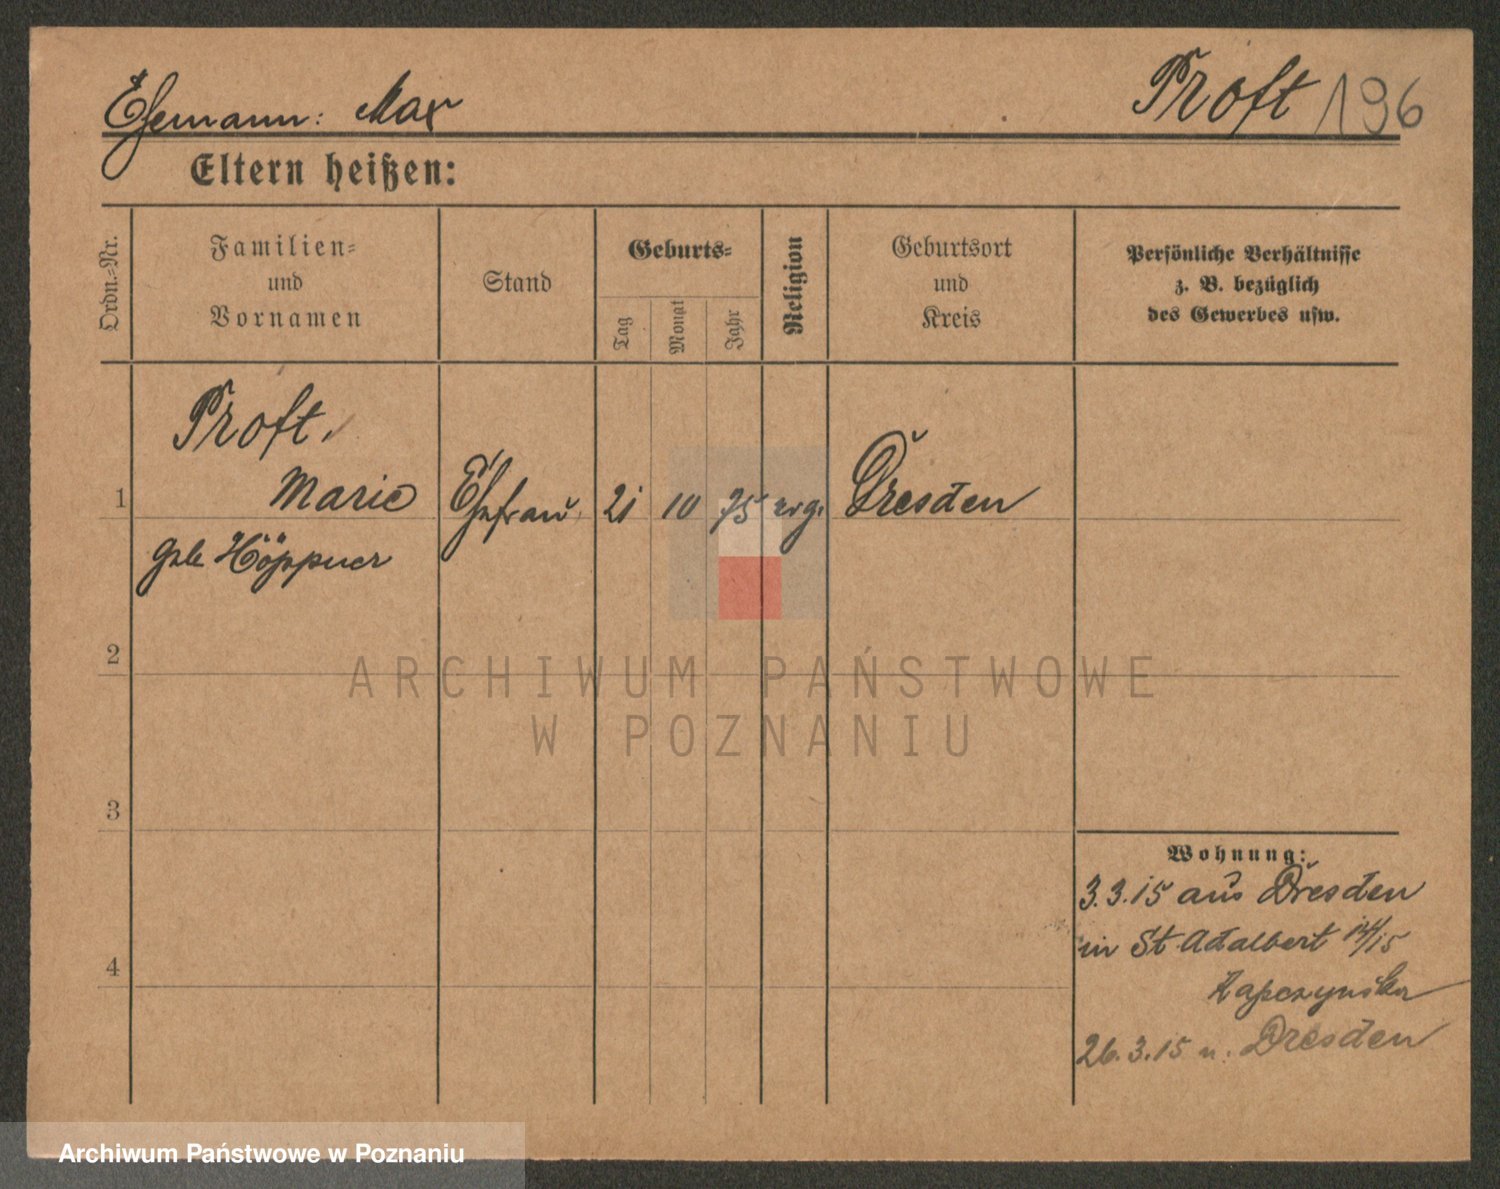 Ehemann: Max
Proft 196
Eltern heißen:
Ordn.=Nr.
Familien=
und
Vornamen
Stand
Geburts=
Tag
Monat
Jahr
Religion
Geburtsort
und
Kreis
Persönliche Verhältnisse
z. B. bezüglich
des Gewerbes usw.
Proft,
1 Marie Ehefrau 21 10 75 evg. Dresden
geb Höppner
2
3
4
Wohnung:
3.3.15 aus Dresden
in St Adalbert 14/15
Kapczynska
26.3.15 n. Dresden
ARCHIWUM PAŃSTWOWE
W POZNANIU
Archiwum Państwowe w Poznaniu